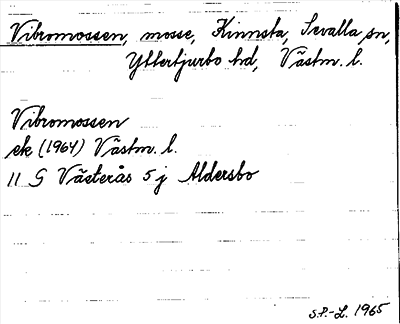 Vibromossen, mosse, Kinnsta, Sevalla sn,
Yttertjurbo hd, Västm. l.
Vibromossen
ek (1964) Västm. l.
11 G Västerås 5 j Aldersbo
S.P.-L. 1965